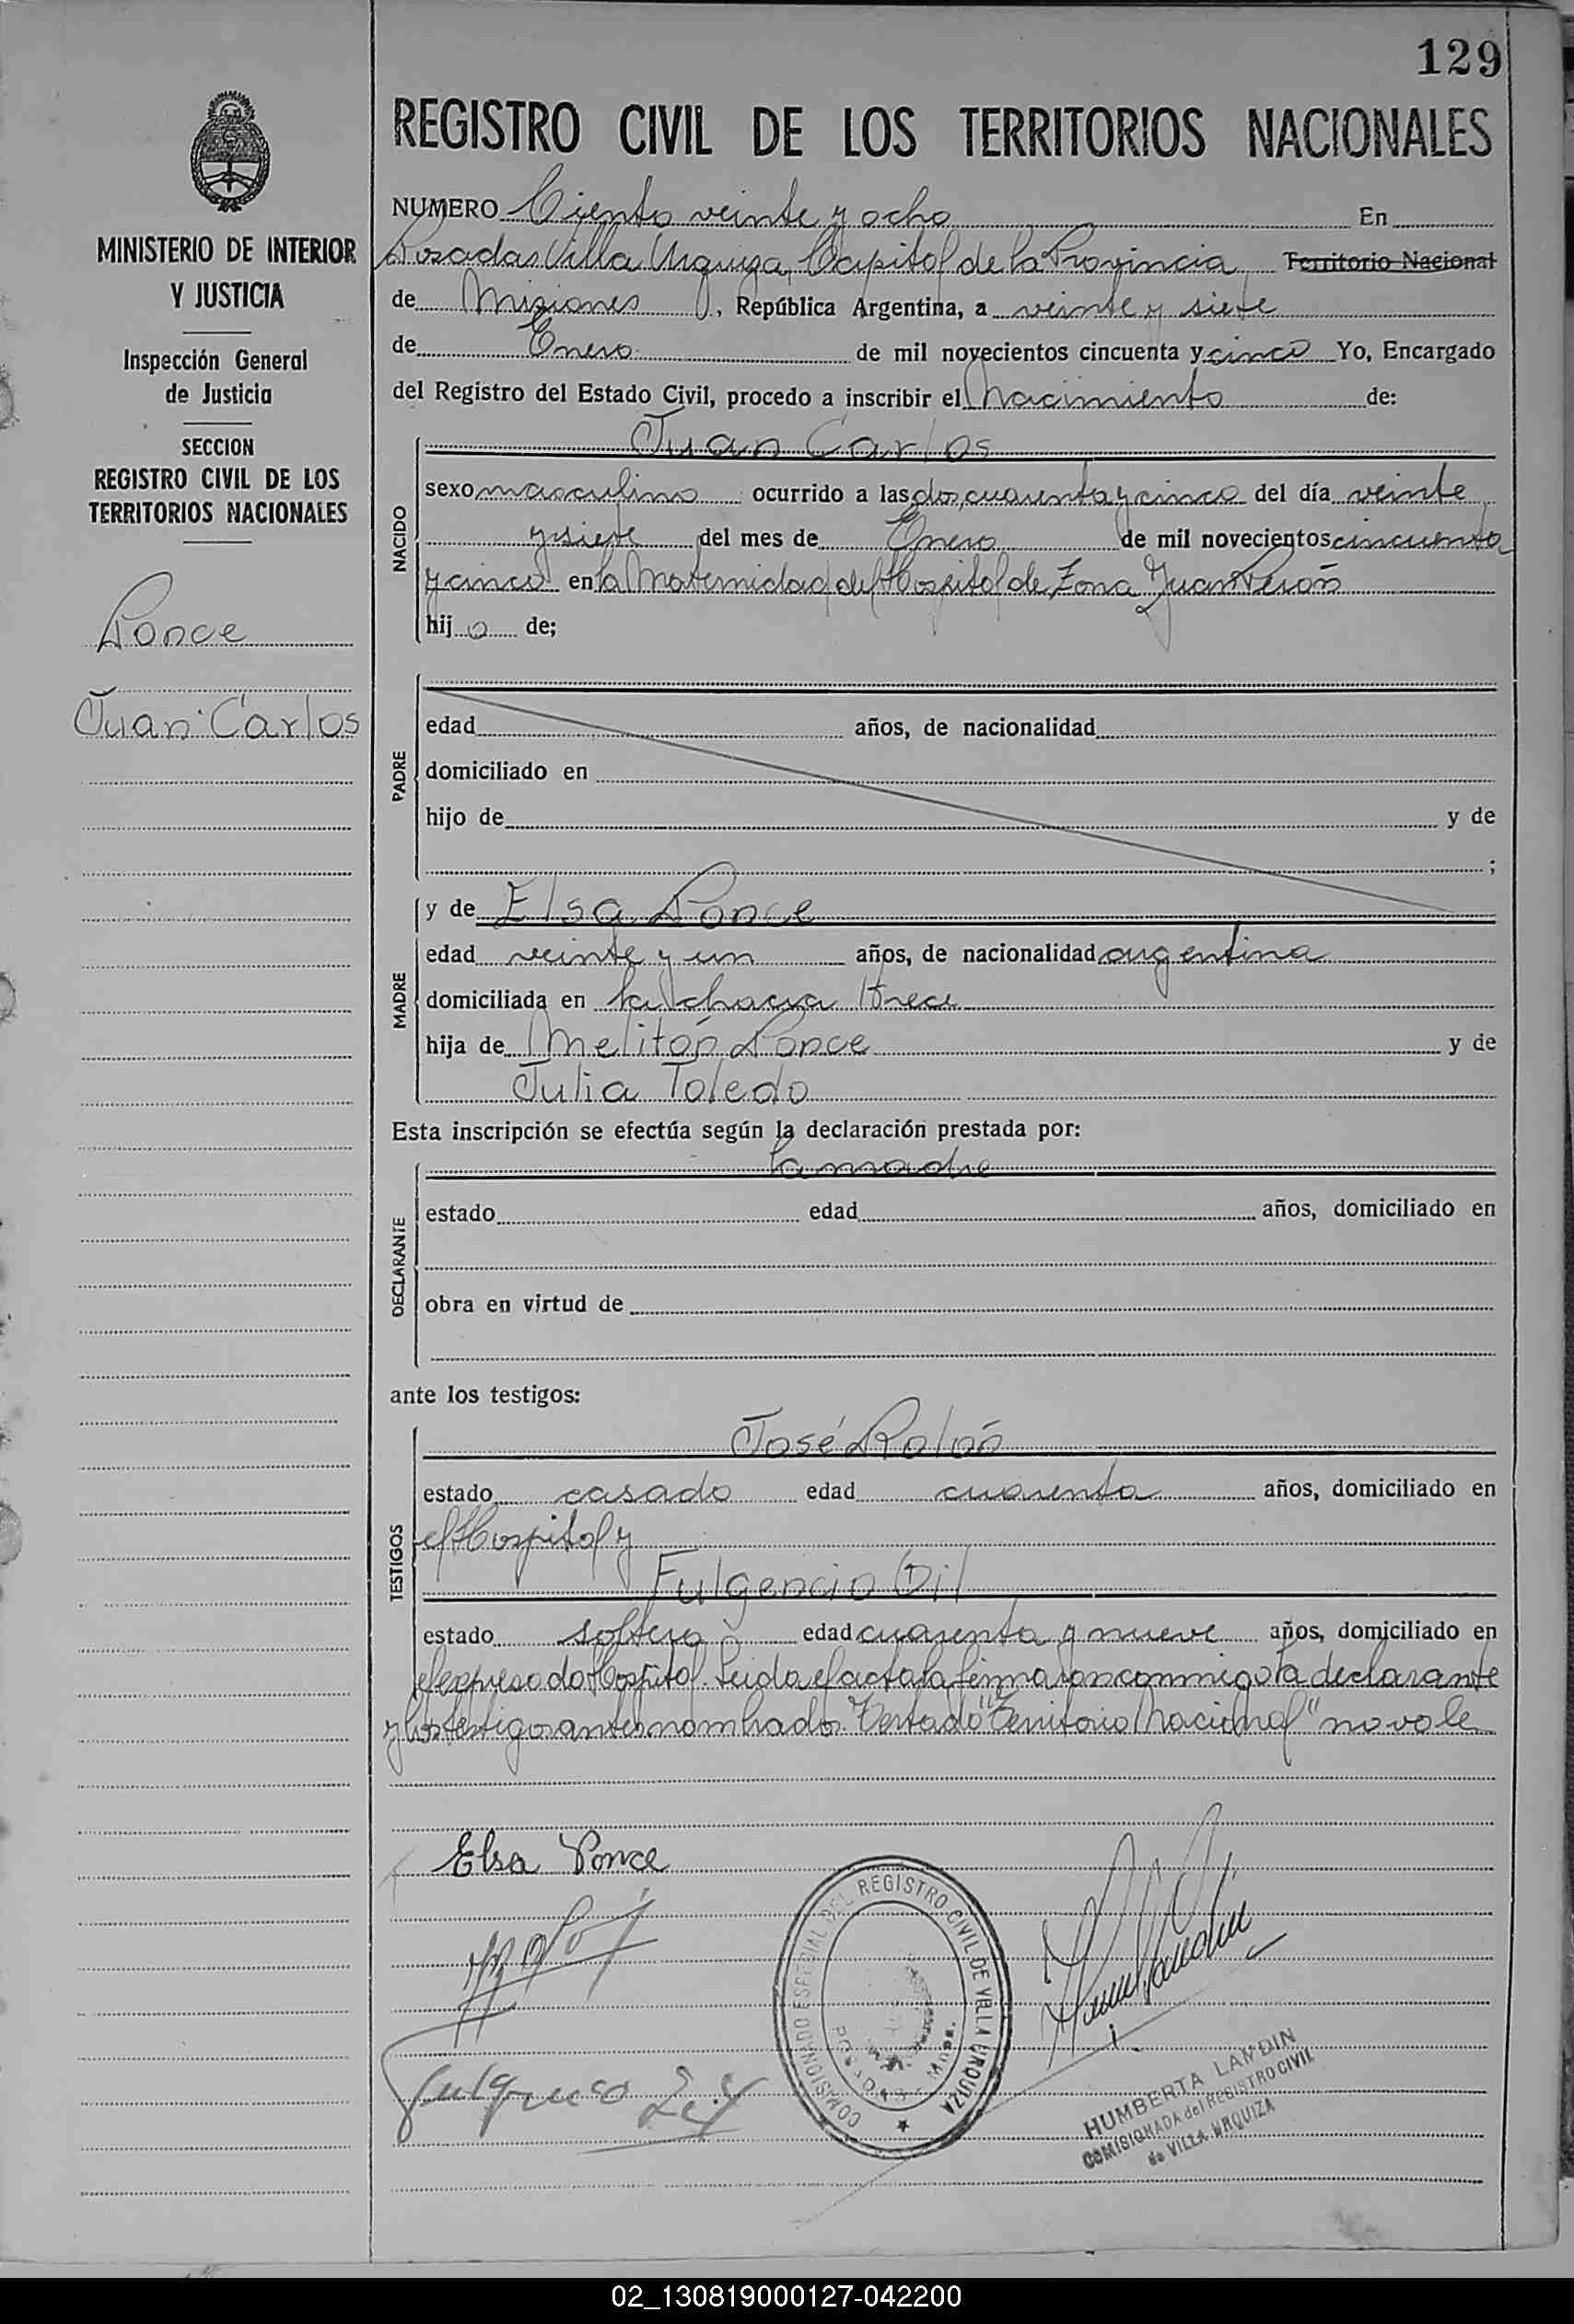 129
REGISTRO CIVIL DE LOS TERRITORIOS NACIONALES
MINISTERIO DE INTERIOR
Y JUSTICIA
Inspección General
de Justicia
SECCION
REGISTRO CIVIL DE LOS
TERRITORIOS NACIONALES
Ponce
Juan Carlos
NUMERO Ciento veinte y ocho En
Posadas Villa Urquiza, Capital de la Provincia Territorio Nacional
de Misiones, República Argentina, a veinte y siete
de Enero de mil novecientos cincuenta y cinco Yo, Encargado
del Registro del Estado Civil, procedo a inscribir el Nacimiento de:
NACIDO
Juan Carlos
sexo masculino ocurrido a las dos, cuarenta y cinco del día veinte
y siete del mes de Enero de mil novecientos cincuenta
y cinco en la Maternidad del Hospital de Zona Juan Perón
hijo de;
PADRE
edad años, de nacionalidad
domiciliado en
hijo de y de
;
MADRE
y de Elsa Ponce
edad veinte y un años, de nacionalidad argentina
domiciliada en la chacra trece
hija de Melitón Ponce y de
Julia Toledo
Esta inscripción se efectúa según la declaración prestada por:
DECLARANTE
la madre
estado edad años, domiciliado en
obra en virtud de
ante los testigos:
TESTIGOS
José Rolón
estado casado edad cuarenta años, domiciliado en
el Hospital y
Fulgencio Dil
estado soltero edad cuarenta y nueve años, domiciliado en
el expresado Hospital. Leida el acta la firmaron conmigo la declarante
y los testigos antes nombrados. Testado "Territorio Nacional" no vale
Elsa Ponce
COMISIONADO ESPECIAL DEL REGISTRO CIVIL DE VILLA URQUIZA
POSADAS - Mnes.
HUMBERTA LANDIN
COMISIONADA del REGISTRO CIVIL
de VILLA URQUIZA
02_130819000127-042200